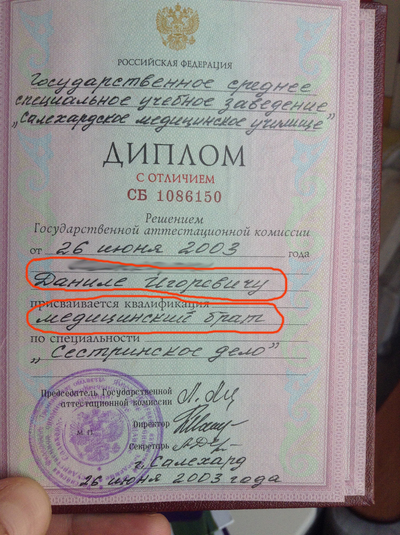 РОССИЙСКАЯ ФЕДЕРАЦИЯ
Государственное среднее
специальное учебное заведение
"Салехардское медицинское училище"
ДИПЛОМ
С ОТЛИЧИЕМ
СБ 1086150
Решением
Государственной аттестационной комиссии
от 26 июня 2003 года
Даниле Игоревичу
присваивается квалификация
медицинский брат
по специальности
"Сестринское дело"
Председатель Государственной
аттестационной комиссии
Директор
Секретарь
М.П.
г. Салехард
26 июня 2003 года